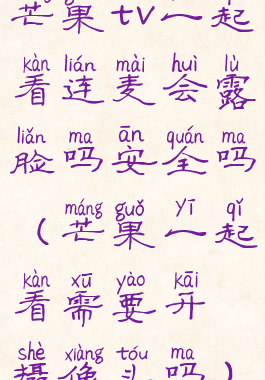 芒果tv一起
kàn lián mài huì lù
看连麦会露
liǎn ma ān quán ma
脸吗安全吗
máng guǒ yī qǐ
(芒果一起
kàn xū yào kāi
看需要开
shè xiàng tóu ma
摄像头吗)